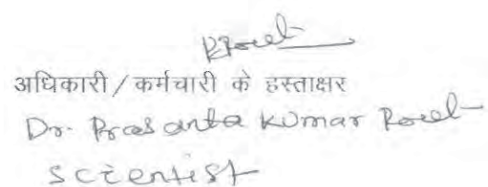 अधिकारी / कर्मचारी के हस्ताक्षर
Dr. Prasanta Kumar
Scientist